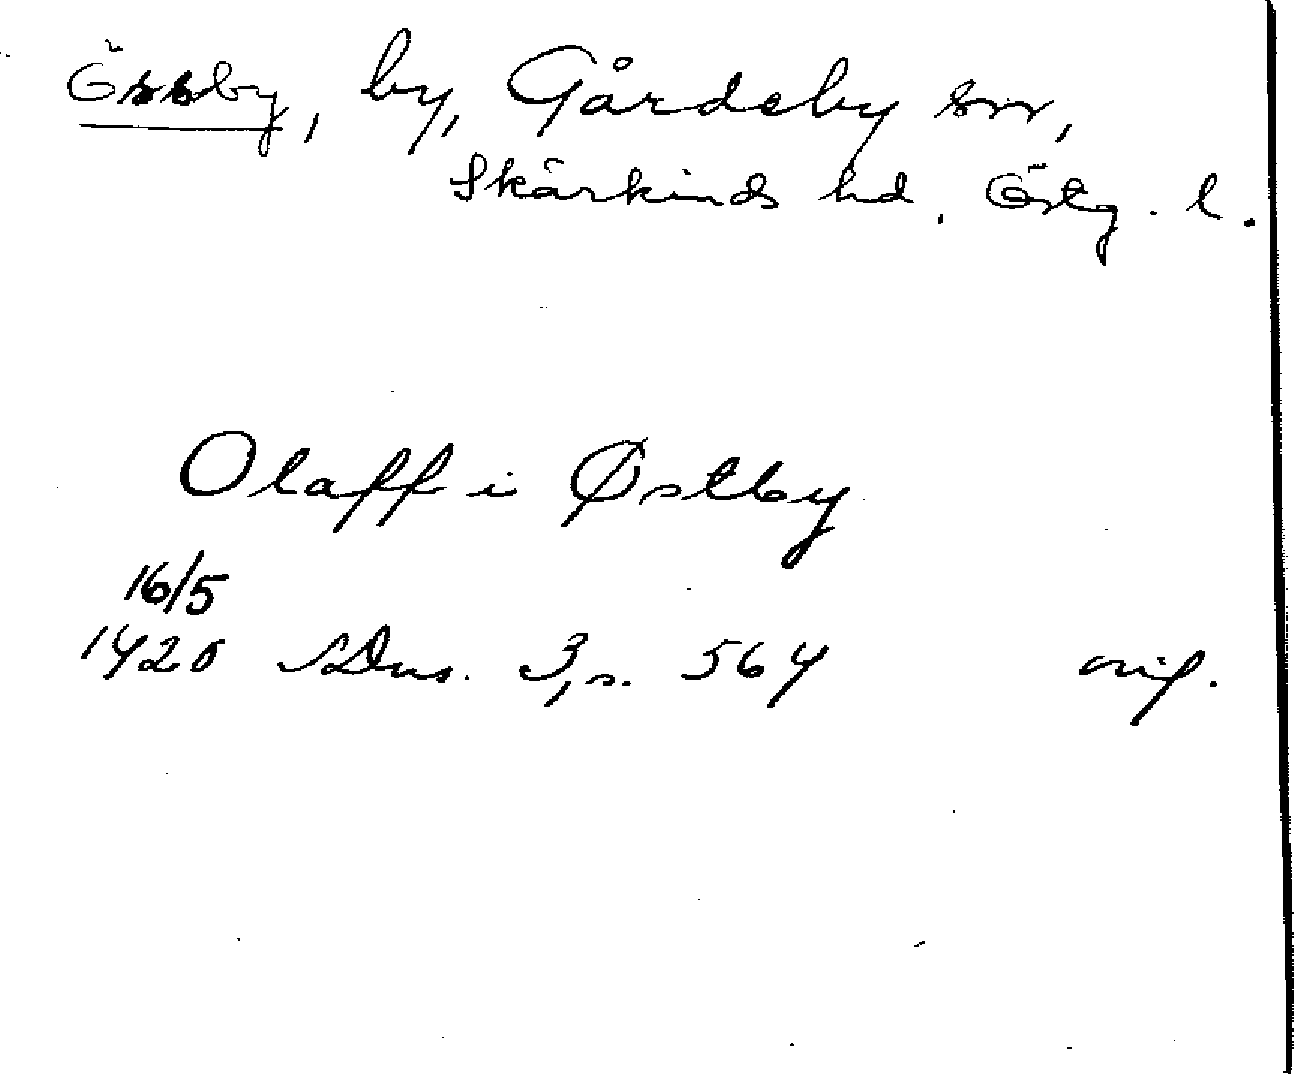 Össby, by, Gårdeby sn,
Skärkinds hd. Östg. l.
Olaff i Østby
16/5
1420 SDns. 3, s. 564 orig.